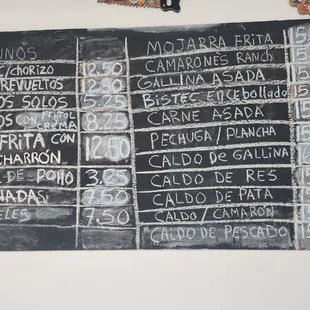 UNOS
C/CHORIZO 12.50
REVUELTOS 12.50
OS SOLOS 5.25
OS CON FRIJOL CREMA 8.25
FRITA CON CHARRÓN 12.50
DE POLLO 3.25
NADAS 7.50
ELES 7.50
MOJARRA FRITA 15
CAMARONES RANCH 15
GALLINA ASADA 15
BISTEC ENCEBOLLADO 15
CARNE ASADA 15
PECHUGA/PLANCHA 15
CALDO DE GALLINA
CALDO DE RES 15
CALDO DE PATA 15
CALDO/CAMARÓN
CALDO DE PESCADO